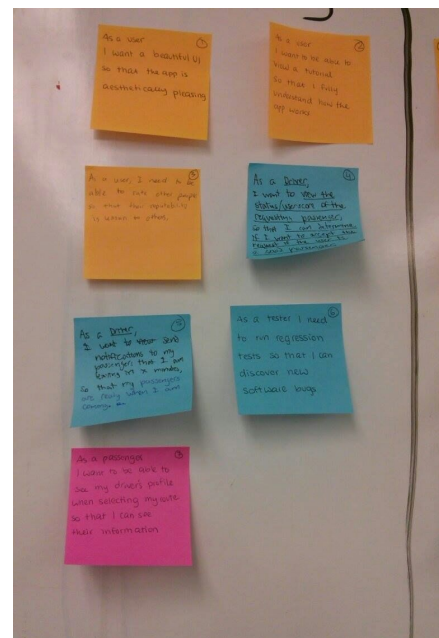 As a user ①
I want a beautiful UI
so that the app is
aesthetically pleasing
As a user ②
I want to be able to
view a tutorial
so that I fully
understand how the
app works
As a user, I need to be ③
able to rate other people
so that their reputability
is known to others.
As a Driver, ④
I want to view the
status/userscore of the
requesting passenger,
so that I can determine
if I want to accept the
request of the user
passenger.
As a Driver, ⑤
I want to send
notifications to my
passengers that I am
leaving in x minutes,
so that my passengers
are ready when I am
coming
As a tester I need ⑥
to run regression
tests so that I can
discover new
software bugs
As a passenger
I want to be able to
see my driver's profile
when selecting my ride
so that I can see
their information